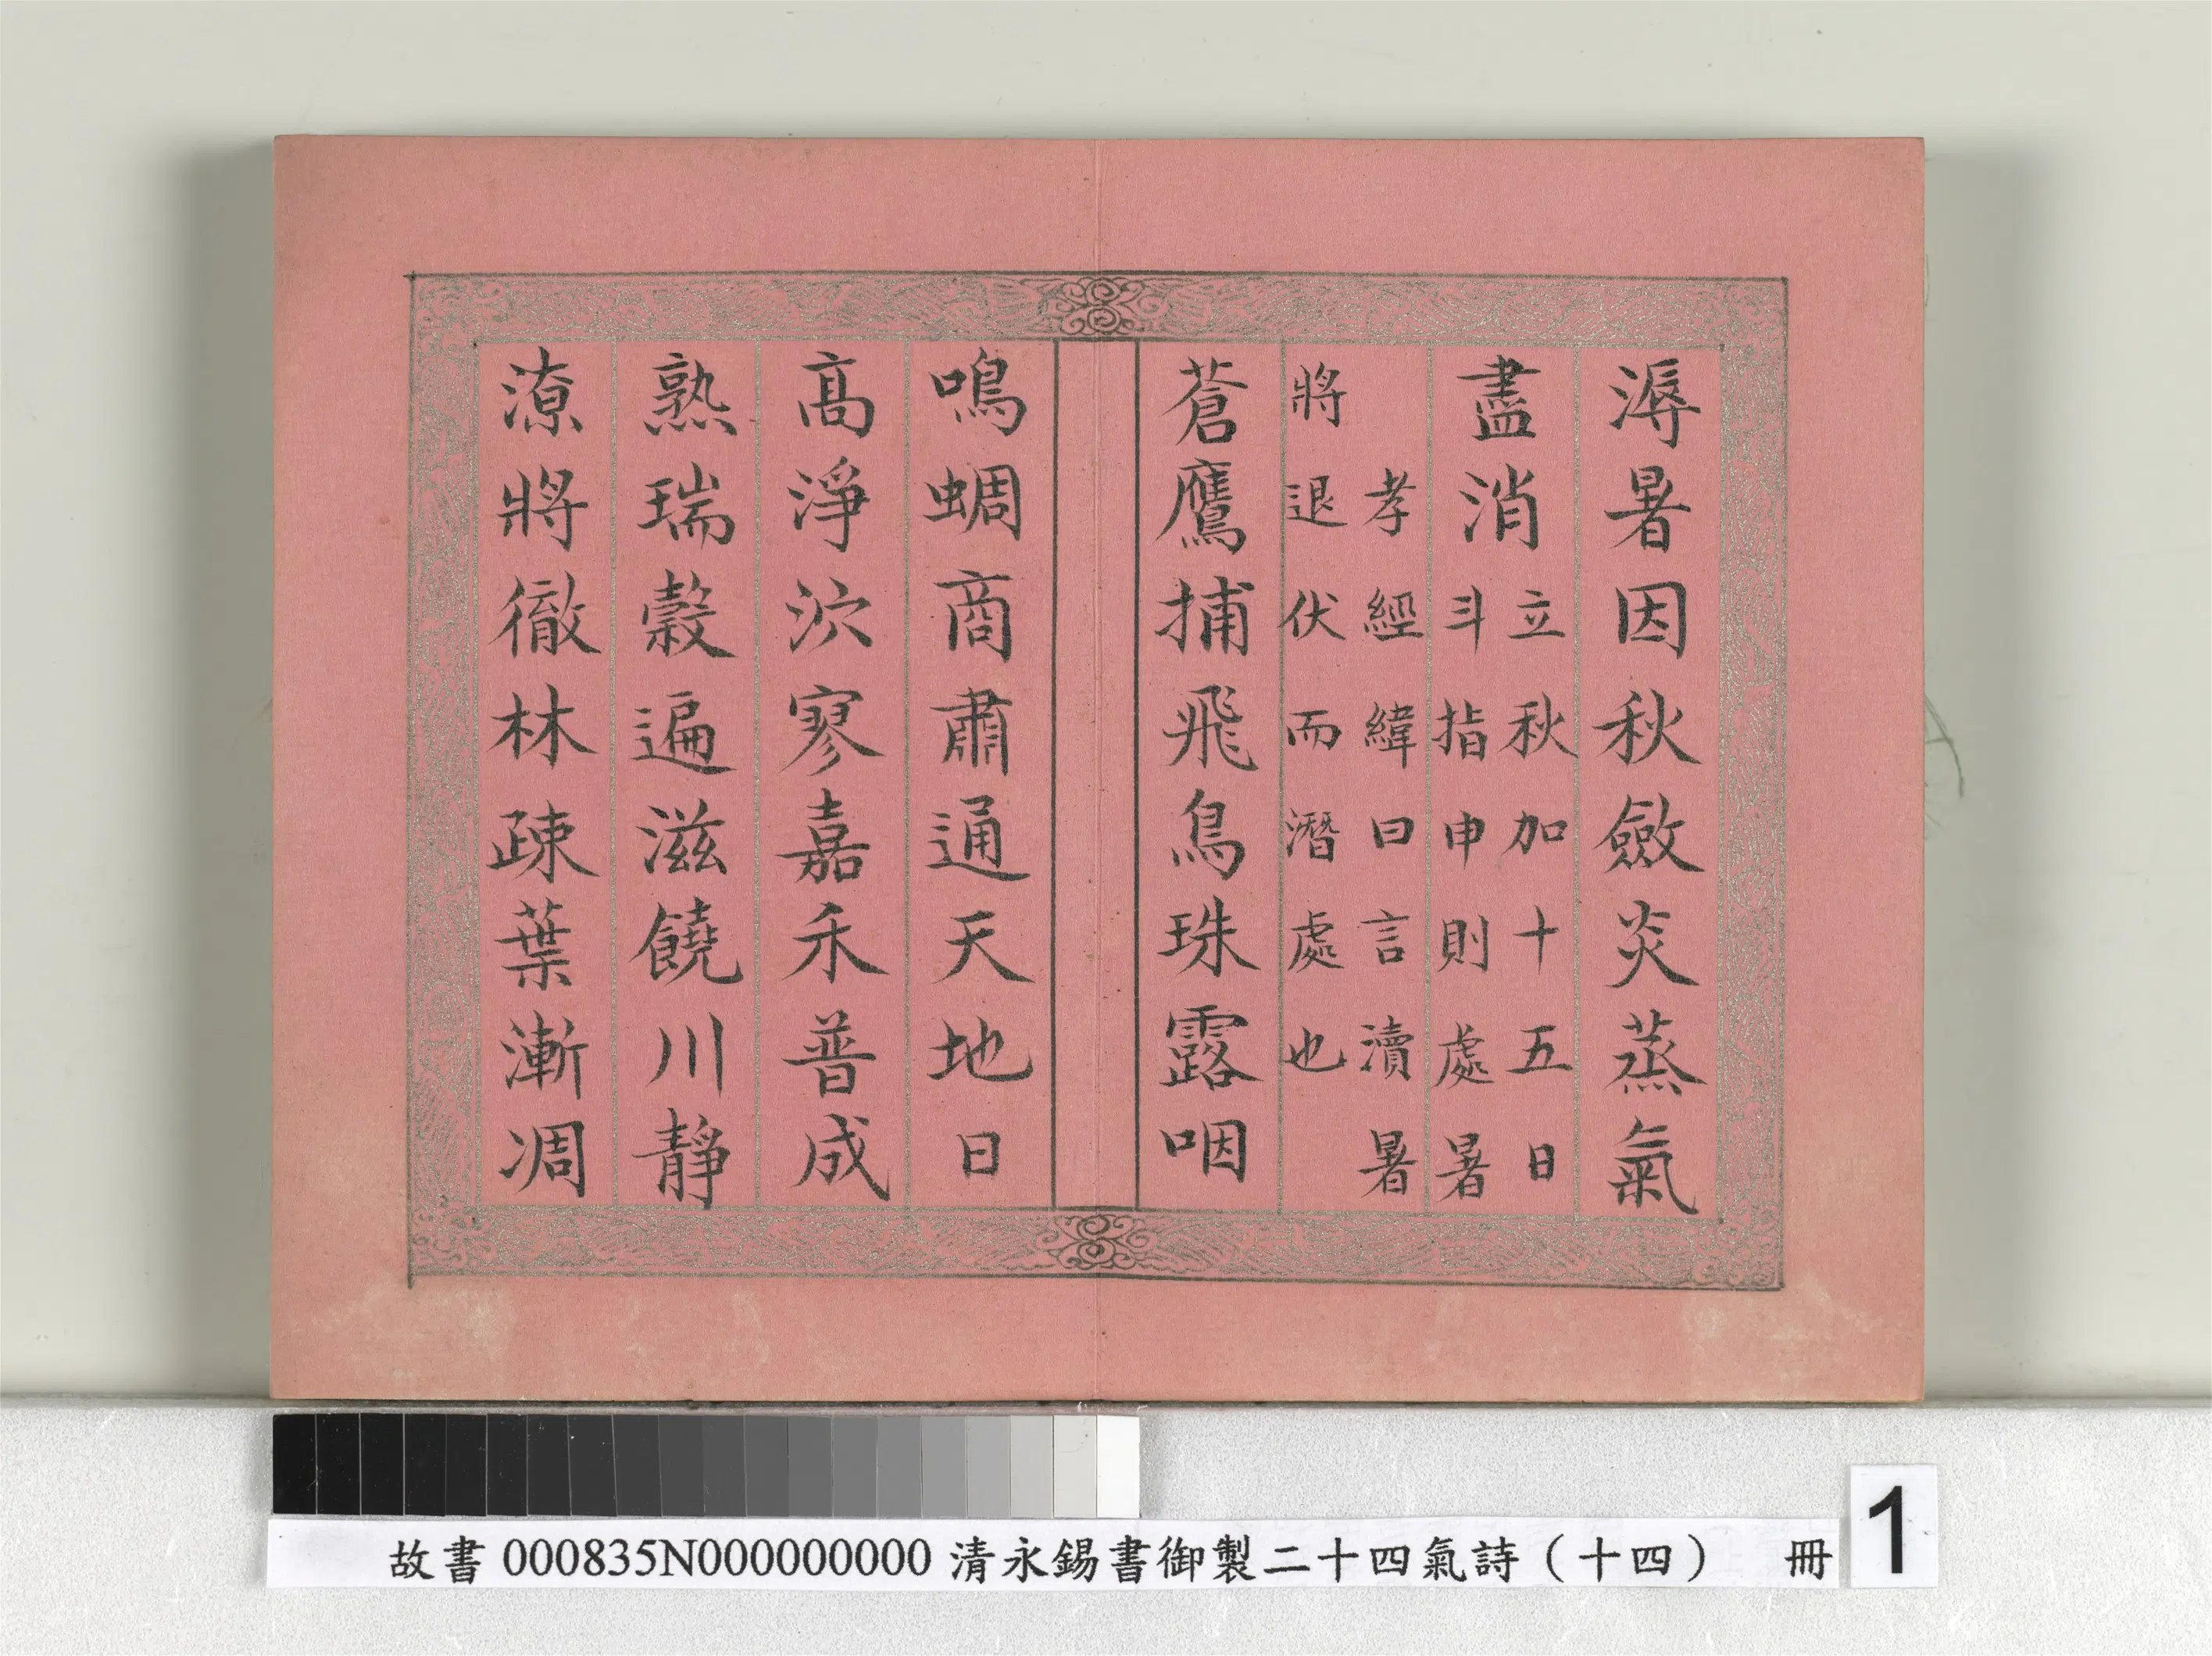 溽暑因秋斂炎蒸氣
盡消立秋加十五日
斗指申則處暑
孝經緯曰言瀆暑
將退伏而潛處也
蒼鷹捕飛鳥珠露咽
鳴蜩商肅通天地日
高淨泬寥嘉禾普成
熟瑞穀遍滋饒川靜
潦將徹林疎葉漸凋
故書000835N000000000清永錫書御製二十四氣詩（十四） 冊
1